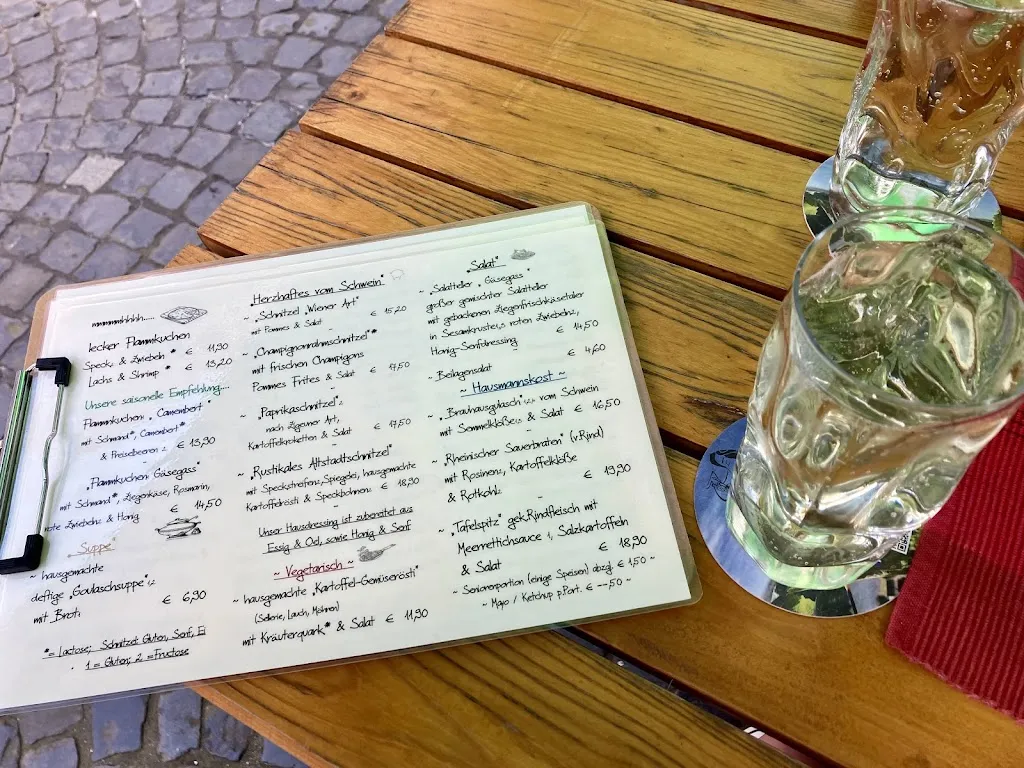 mmmmhhhh.....
lecker Flammkuchen
Speck & Zwiebeln * € 11,90
Lachs & Shrimp * € 13,20
Unsere saisonelle Empfehlung...
Flammkuchen „Camembert"
mit Schmand*, Camembert*
& Preiselbeeren 2
€ 13,90
„Flammkuchen Gäsegass"
mit Schmand*, Ziegenkäse, Rosmarin,
rote Zwiebeln2 & Honig € 14,50
„Suppe"
~ hausgemachte
deftige „Goulaschsuppe"1,2
mit Brot1 € 6,90
*= Lactose; Schnitzel: Gluten, Senf, Ei
1 = Gluten; 2 = Fructose
„Herzhaftes vom Schwein"
~ „Schnitzel „Wiener Art"
mit Pommes & Salat € 15,20
~ „Champignonrahmschnitzel"*
mit frischen Champigons
Pommes Frites & Salat € 17,50
~ „Paprikaschnitzel"2
nach Zigeuner Art,
Kartoffelkroketten & Salat € 17,50
~ „Rustikales Altstadtschnitzel"
mit Speckstreifen, Spiegelei, hausgemachte
Kartoffelrösti & Speckbohnen2 € 18,90
Unser Hausdressing ist zubereitet aus
Essig & Oel, sowie Honig & Senf
~ Vegetarisch ~
~ hausgemachte „Kartoffel-Gemüserösti"
(Sellerie, Lauch, Möhren)
mit Kräuterquark* & Salat € 11,90
„Salat"
~ „Salatteller „Gäsegass"
großer gemischter Salatteller
mit gebackenen Ziegenfrischkäsetaler
in Sesamkruste1,2, roten Zwiebeln2,
Honig-Senfdressing € 14,50
~ Beilagensalat € 4,60
~ Hausmannskost ~
~ „Brauhausgulasch"1,2,* vom Schwein
mit Semmelklöße1,2 & Salat € 16,50
~ „Rheinischer Sauerbraten" (v.Rind)
mit Rosinen2, Kartoffelklöße
& Rotkohl2 € 19,90
~ „Tafelspitz" gek.Rindfleisch mit
Meerrettichsauce 1, Salzkartoffeln
& Salat € 18,90
~ Seniorenportion (einige Speisen) abzgl. € 1,50 ~
~ Mayo / Ketchup p.Port. € --,50 ~